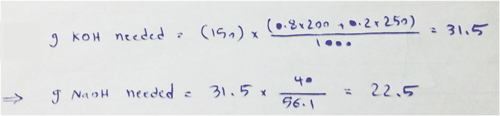 g KOH needed = (150) × (0.8×200 + 0.2×250) / 1000 = 31.5
⇒ g NaOH needed = 31.5 × 40 / 56.1 = 22.5